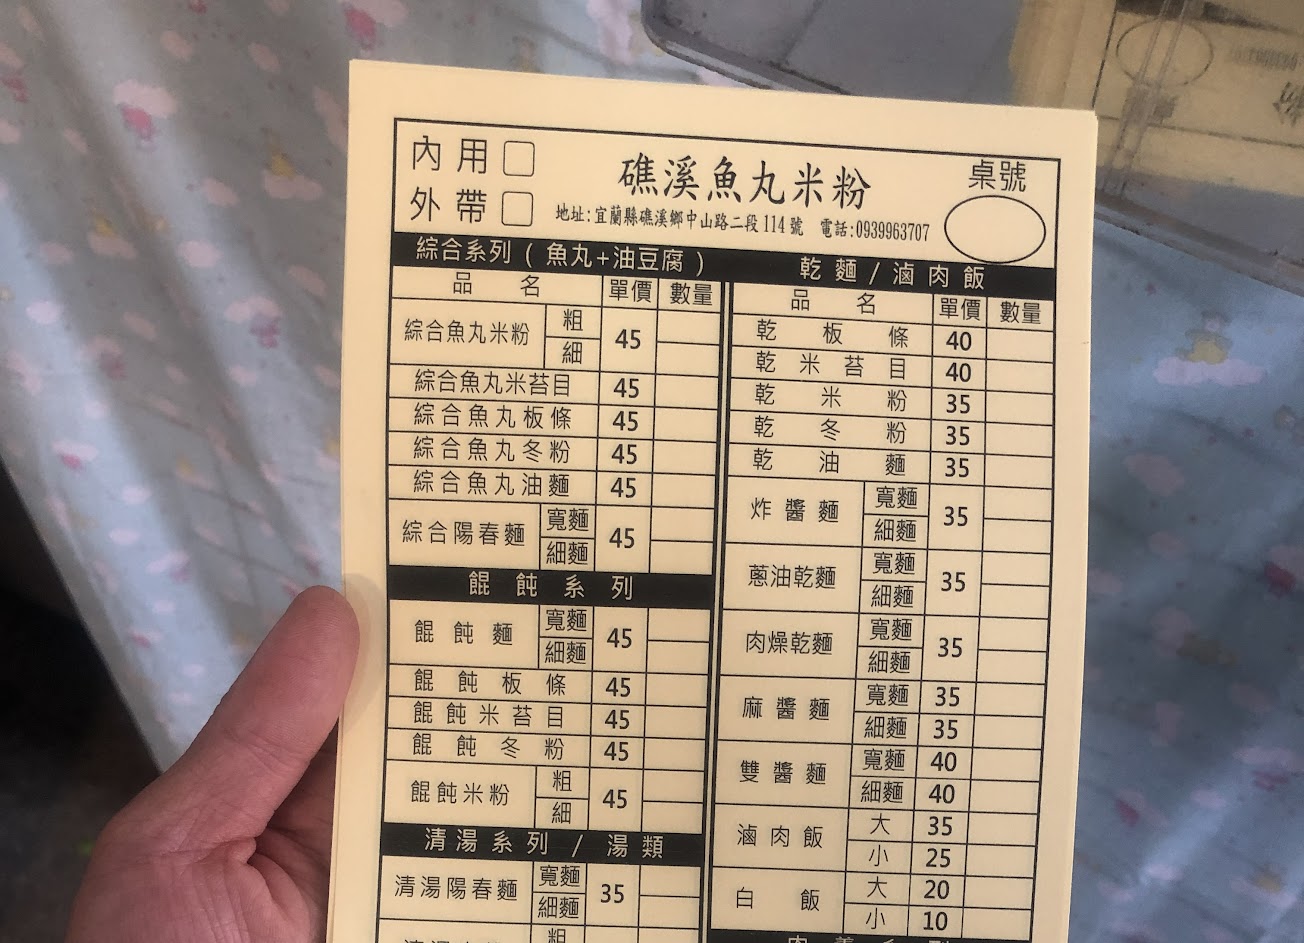 內用
外帶
礁溪魚丸米粉
地址:宜蘭縣礁溪鄉中山路二段114號 電話:0939963707
桌號
綜合系列(魚丸+油豆腐)
品名 單價 數量
綜合魚丸米粉 粗 細 45
綜合魚丸米苔目 45
綜合魚丸板條 45
綜合魚丸冬粉 45
綜合魚丸油麵 45
綜合陽春麵 寬麵 細麵 45
餛飩系列
餛飩麵 寬麵 細麵 45
餛飩板條 45
餛飩米苔目 45
餛飩冬粉 45
餛飩米粉 粗 細 45
清湯系列/湯類
清湯陽春麵 寬麵 細麵 35
粗
乾麵/滷肉飯
品名 單價 數量
乾板條 40
乾米苔目 40
乾米粉 35
乾冬粉 35
乾油麵 35
炸醬麵 寬麵 細麵 35
蔥油乾麵 寬麵 細麵 35
肉燥乾麵 寬麵 細麵 35
麻醬麵 寬麵 35
細麵 35
雙醬麵 寬麵 40
細麵 40
滷肉飯 大 35
小 25
白飯 大 20
小 10